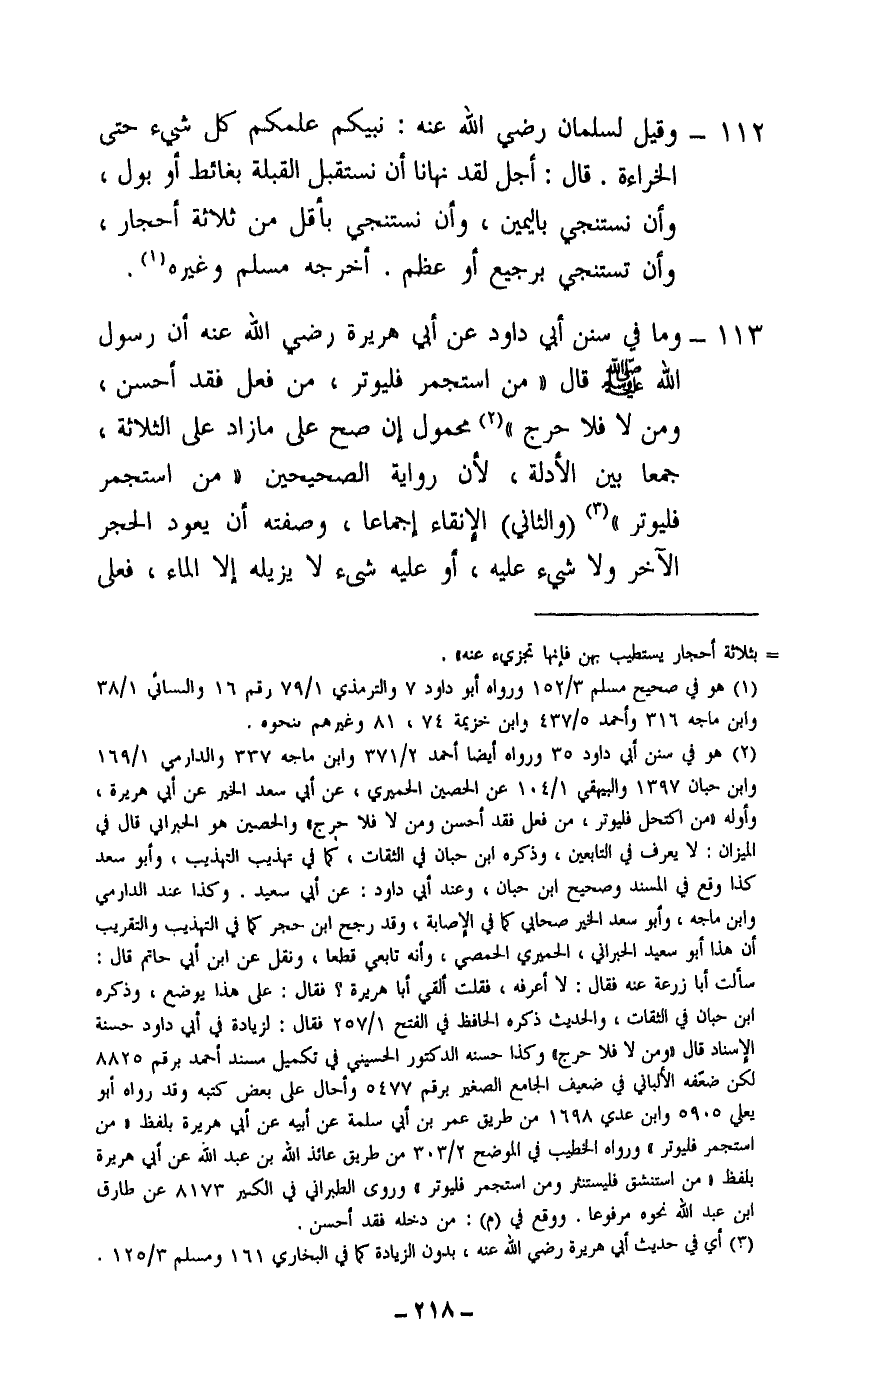 ١١٢ ـ وقيل لسلمان رضي الله عنه : نبيكم علمكم كل شيء حتى
الخراءة . قال : أجل لقد نهانا أن نستقبل القبلة بغائط أو بول ،
وأن نستنجي باليمين ، وأن نستنجي بأقل من ثلاثة أحجار ،
وأن تستنجي برجيع أو عظم . أخرجه مسلم وغيره(١) .
١١٣ ـ وما في سنن أبي داود عن أبي هريرة رضي الله عنه أن رسول
الله ﷺ قال « من استجمر فليوتر ، من فعل فقد أحسن ،
ومن لا فلا حرج »(٢) محمول إن صح على مازاد على الثلاثة ،
جمعا بين الأدلة ، لأن رواية الصحيحين « من استجمر
فليوتر »(٣) (والثاني) الإنقاء إجماعا ، وصفته أن يعود الحجر
الآخر ولا شيء عليه ، أو عليه شىء لا يزيله إلا الماء ، فعلى
= بثلاثة أحجار يستطيب بهن فإنها تجزيء عنه» .
(١) هو في صحيح مسلم ١٥٢/٣ ورواه أبو داود ٧ والترمذي ٧٩/١ رقم ١٦ والسائي ٣٨/١
وابن ماجه ٣١٦ وأحمد ٤٣٧/٥ وابن خزيمة ٧٤ ، ٨١ وغيرهم بنحوه .
(٢) هو في سنن أبي داود ٣٥ ورواه أيضا أحمد ٣٧١/٢ وابن ماجه ٣٣٧ والدارمي ١٦٩/١
وابن حبان ١٣٩٧ والبيهقي ١٠٤/١ عن الحصين الحميري ، عن أبي سعد الخير عن أبي هريرة ،
وأوله «من اكتحل فليوتر ، من فعل فقد أحسن ومن لا فلا حرج» والحصين هو الحبراني قال في
الميزان : لا يعرف في التابعين ، وذكره ابن حبان في الثقات ، كما في تهذيب التهذيب ، وأبو سعد
كذا وقع في المسند وصحيح ابن حبان ، وعند أبي داود : عن أبي سعيد . وكذا عند الدارمي
وابن ماجه ، وأبو سعد الخير صحابي كما في الإصابة ، وقد رجح ابن حجر كما في التهذيب والتقريب
أن هذا أبو سعيد الحبراني ، الحميري الحمصي ، وأنه تابعي قطعا ، ونقل عن ابن أبي حاتم قال :
سألت أبا زرعة عنه فقال : لا أعرفه ، فقلت ألقي أبا هريرة ؟ فقال : على هذا يوضع ، وذكره
ابن حبان في الثقات ، والحديث ذكره الحافظ في الفتح ٢٥٧/١ فقال : لزيادة في أبي داود حسنة
الإسناد قال «ومن لا فلا حرج» وكذا حسنه الدكتور الحسيني في تكميل مسند أحمد برقم ٨٨٢٥
لكن ضعّفه الألباني في ضعيف الجامع الصغير برقم ٥٤٧٧ وأحال على بعض كتبه وقد رواه أبو
يعلي ٥٩٠٥ وابن عدي ١٦٩٨ من طريق عمر بن أبي سلمة عن أبيه عن أبي هريرة بلفظ « من
استجمر فليوتر » ورواه الخطيب في الموضح ٣٠٣/٢ من طريق عائذ الله بن عبد الله عن أبي هريرة
بلفظ « من استنشق فليستنثر ومن استجمر فليوتر » وروى الطبراني في الكبير ٨١٧٣ عن طارق
ابن عبد الله نحوه مرفوعا . ووقع في (م) : من دخله فقد أحسن .
(٣) أي في حديث أبي هريرة رضي الله عنه ، بدون الزيادة كما في البخاري ١٦١ ومسلم ١٢٥/٣ .
ـ ٢١٨ ـ